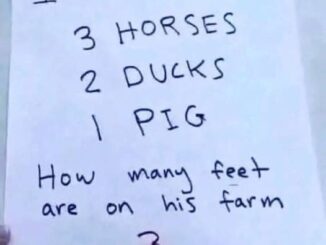 3 HORSES
2 DUCKS
1 PIG
How many feet
are on his farm
?